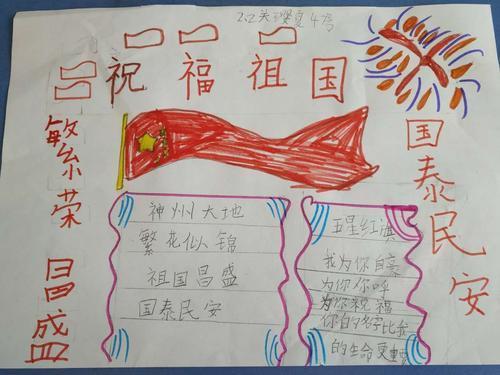 2.2关璎夏4号
祝福祖国
繁荣昌盛
国泰民安
神州大地
繁花似锦
祖国昌盛
国泰民安
五星红旗
我为你自豪
为你欢呼
为你祝福
你的名字比我
的生命更重要